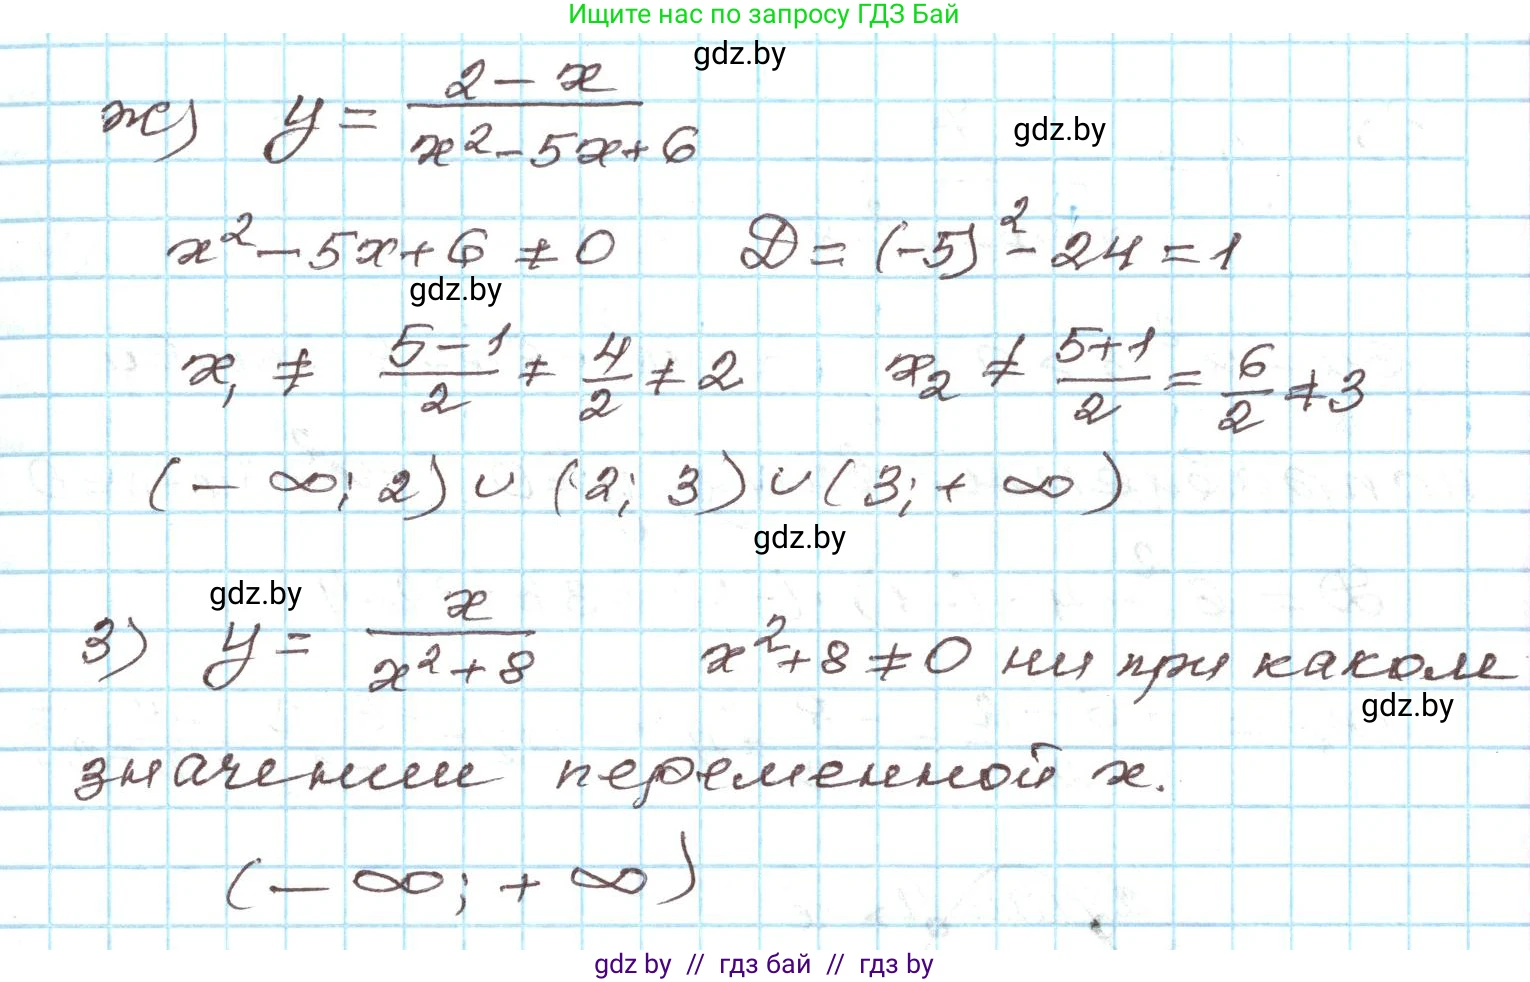 Ищите нас по запросу ГДЗ Бай
gdz.by
ж) y = (2 - x) / (x² - 5x + 6)
gdz.by
x² - 5x + 6 ≠ 0 D = (-5)² - 24 = 1
gdz.by
x₁ ≠ (5 - 1)/2 ≠ 4/2 ≠ 2 x₂ ≠ (5+1)/2 = 6/2 ≠ 3
(- ∞; 2) ∪ (2; 3) ∪ (3; + ∞)
gdz.by
gdz.by
з) y = x / (x² + 8) x² + 8 ≠ 0 ни при каком
gdz.by
значении переменной x.
(- ∞; + ∞)
gdz by // гдз бай // гдз by